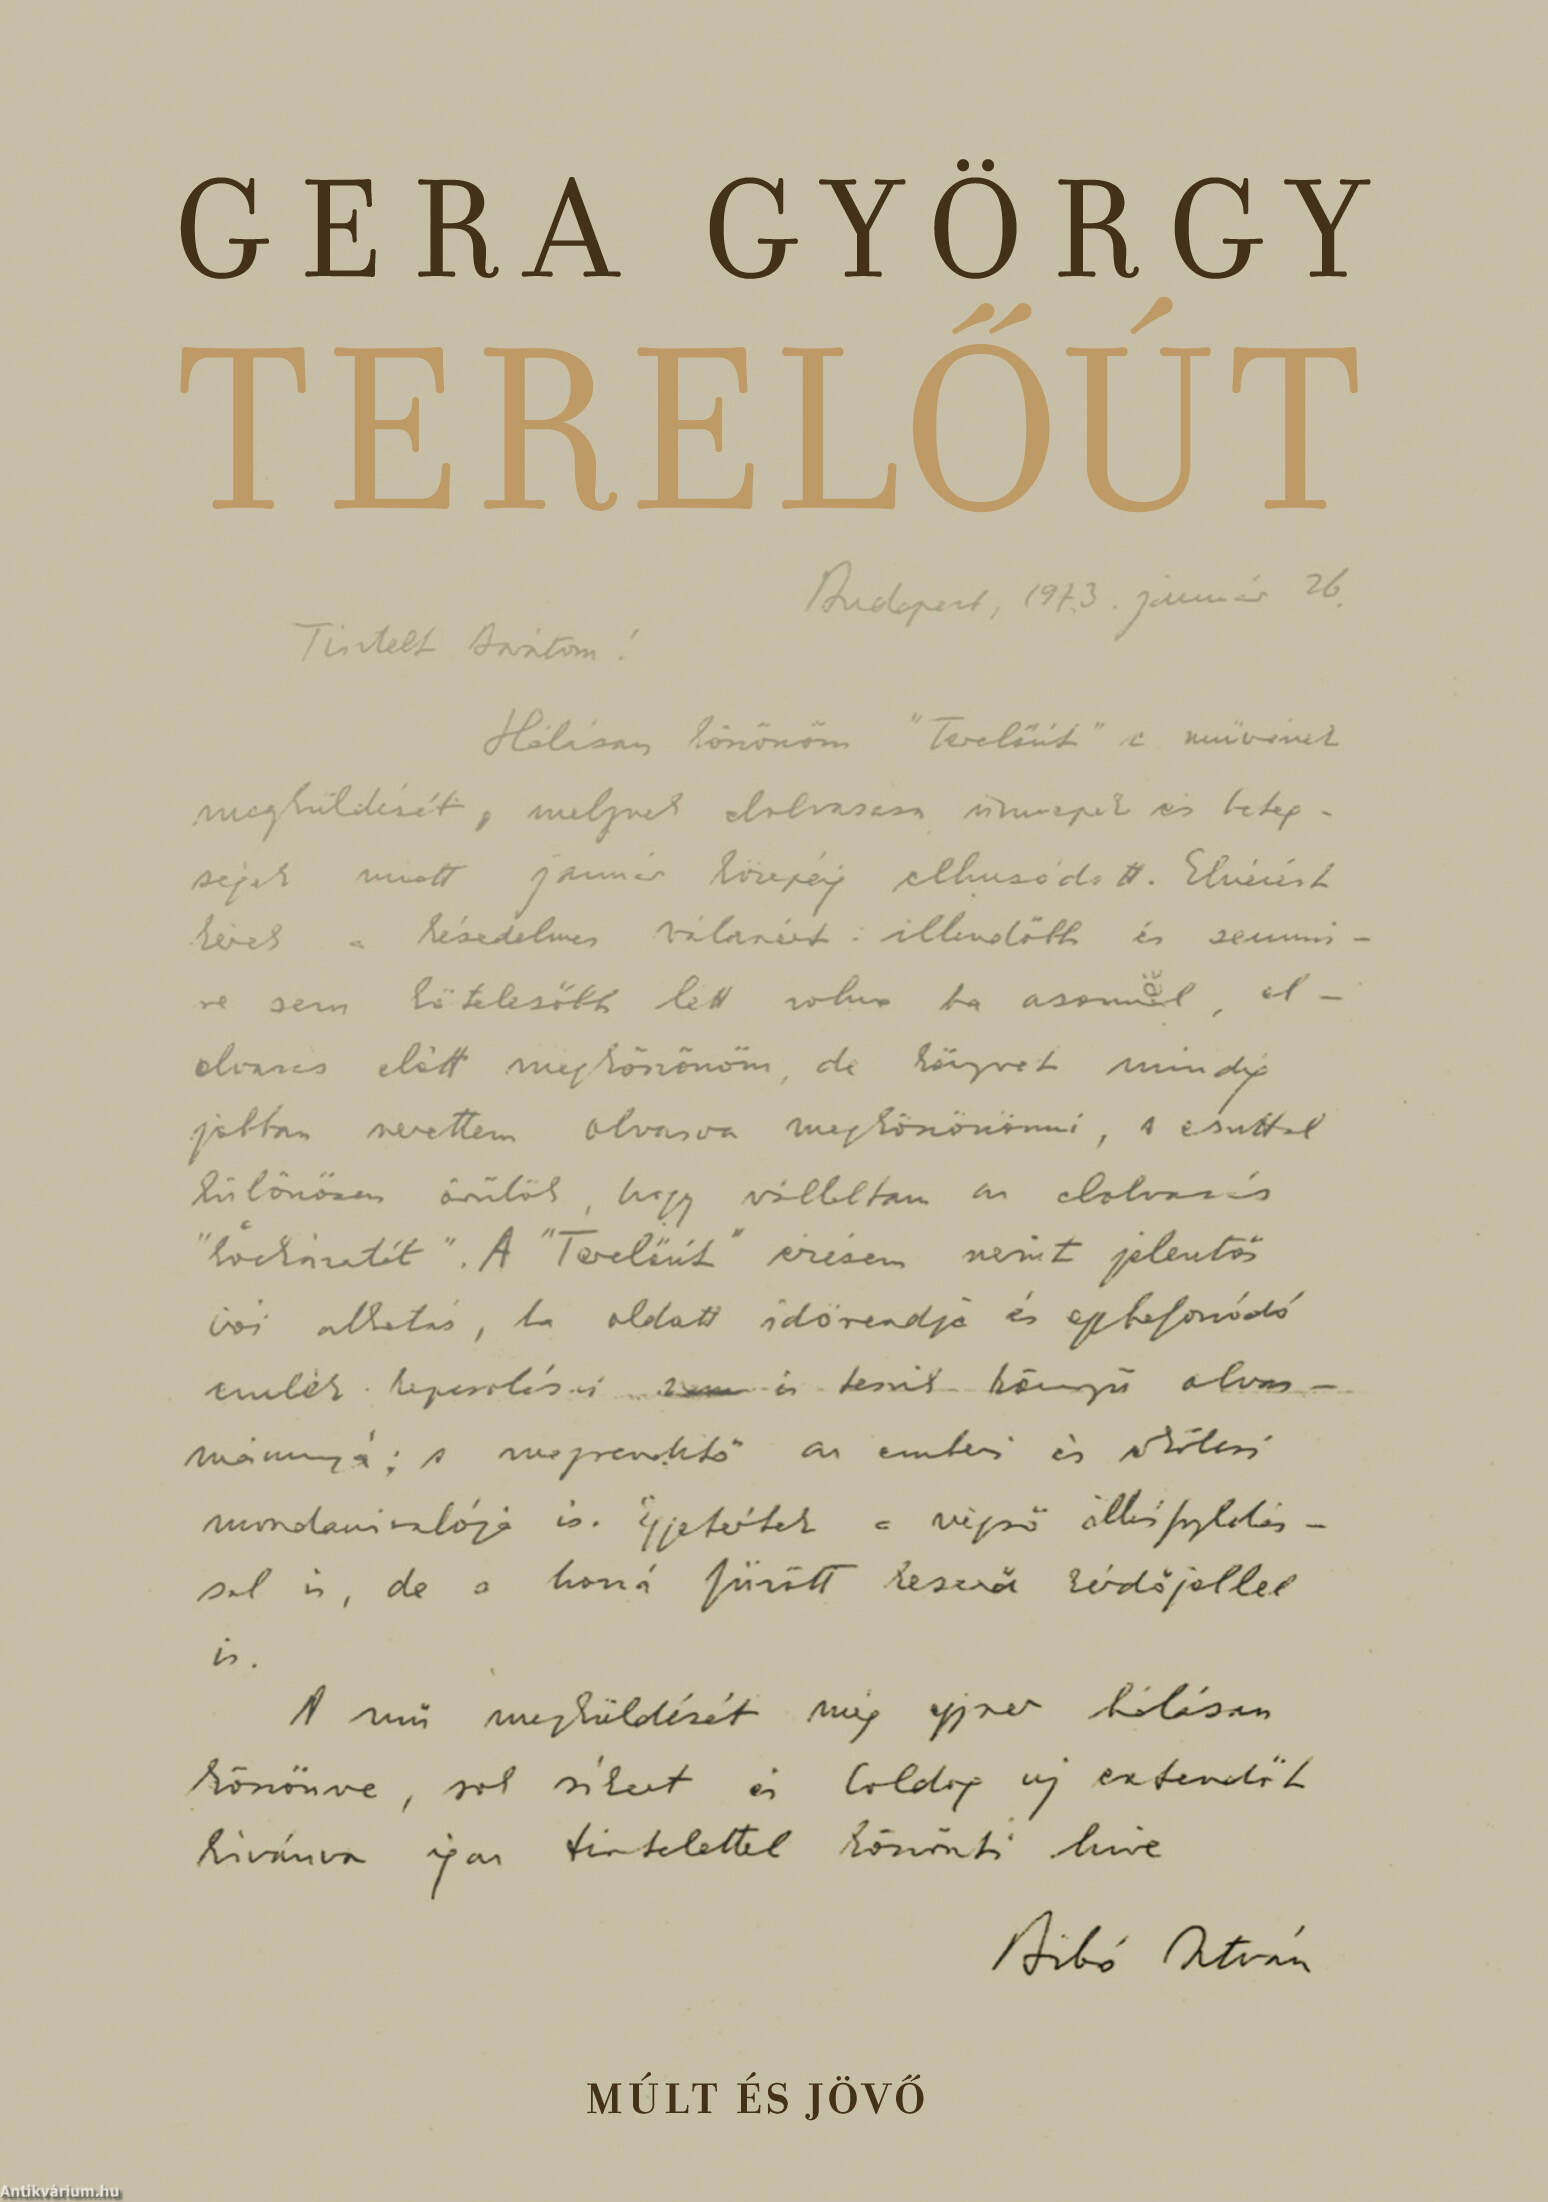 GERA GYÖRGY
TERELŐÚT
Budapest, 1973. január 26.
Tisztelt Barátom!
Hálásan köszönöm "Terelőút" c művének
megküldését, melynek elolvasása ünnepek és beteg-
ségek miatt január közepéig elhúzódott. Elnézést
kérek a késedelmes válaszért: illendőbb és semmi-
re sem kötelezőbb lett volna ha azonnal, el-
olvasás előtt megköszönöm, de könyvet mindig
jobban szerettem olvasva megköszönni, s ezúttal
különösen örülök, hogy vállaltam az elolvasás
"kockázatát". A "Terelőút" érzésem szerint jelentős
írói alkotás, ha oldott időrendje és egybefonódó
emlék kapcsolásai is teszik könnyű olvas-
mánnyá; s megrendítő az emberi és erkölcsi
mondanivalója is. Egyetértek a végső állásfoglalás-
sal is, de a hozzá fűzött keserű kérdőjellel
is.
A mű megküldését még egyszer hálásan
köszönve, sok sikert és boldog új esztendőt
kívánva igaz tisztelettel köszönti híve
Bibó István
MÚLT ÉS JÖVŐ
Antikvárium.hu